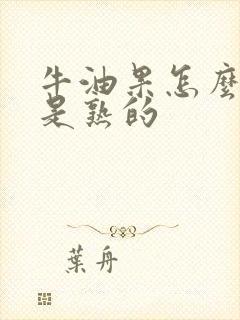 牛油果怎麼
是熟的
葉舟